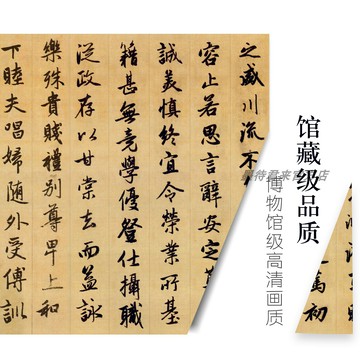 之盛川流不
容止若思言辭安定
誠美慎終宜令榮業所基
籍甚無竟學優登仕攝職
從政存以甘棠去而益詠
樂殊貴賤禮別尊卑上和
下睦夫唱婦隨外受傅訓
馆藏级品质
博物馆级高清画质
初